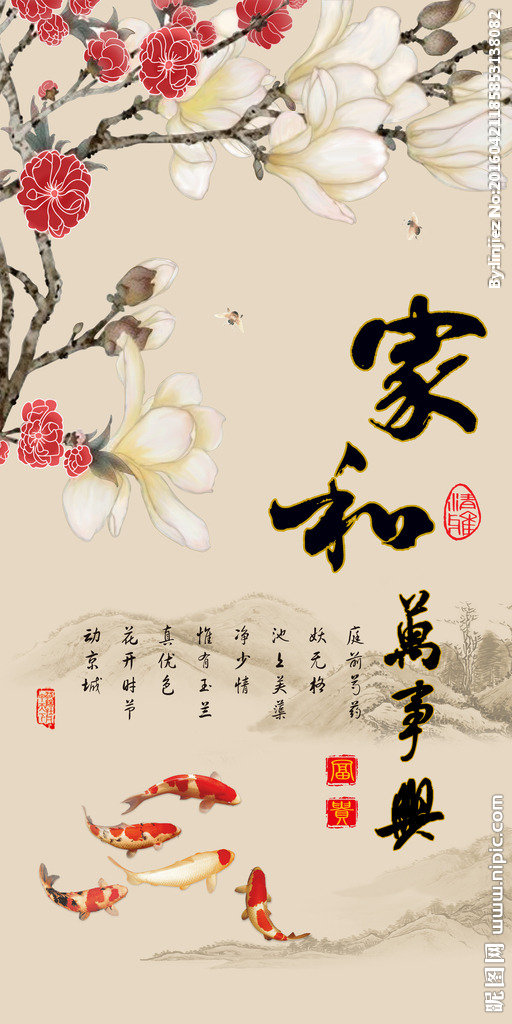 家和
萬事興
庭前芍药
妖无格
池上芙蕖
净少情
惟有玉兰
真优色
花开时节
动京城
富
貴
By:linjiez No:20160421185853138082
昵图网 www.nipic.com